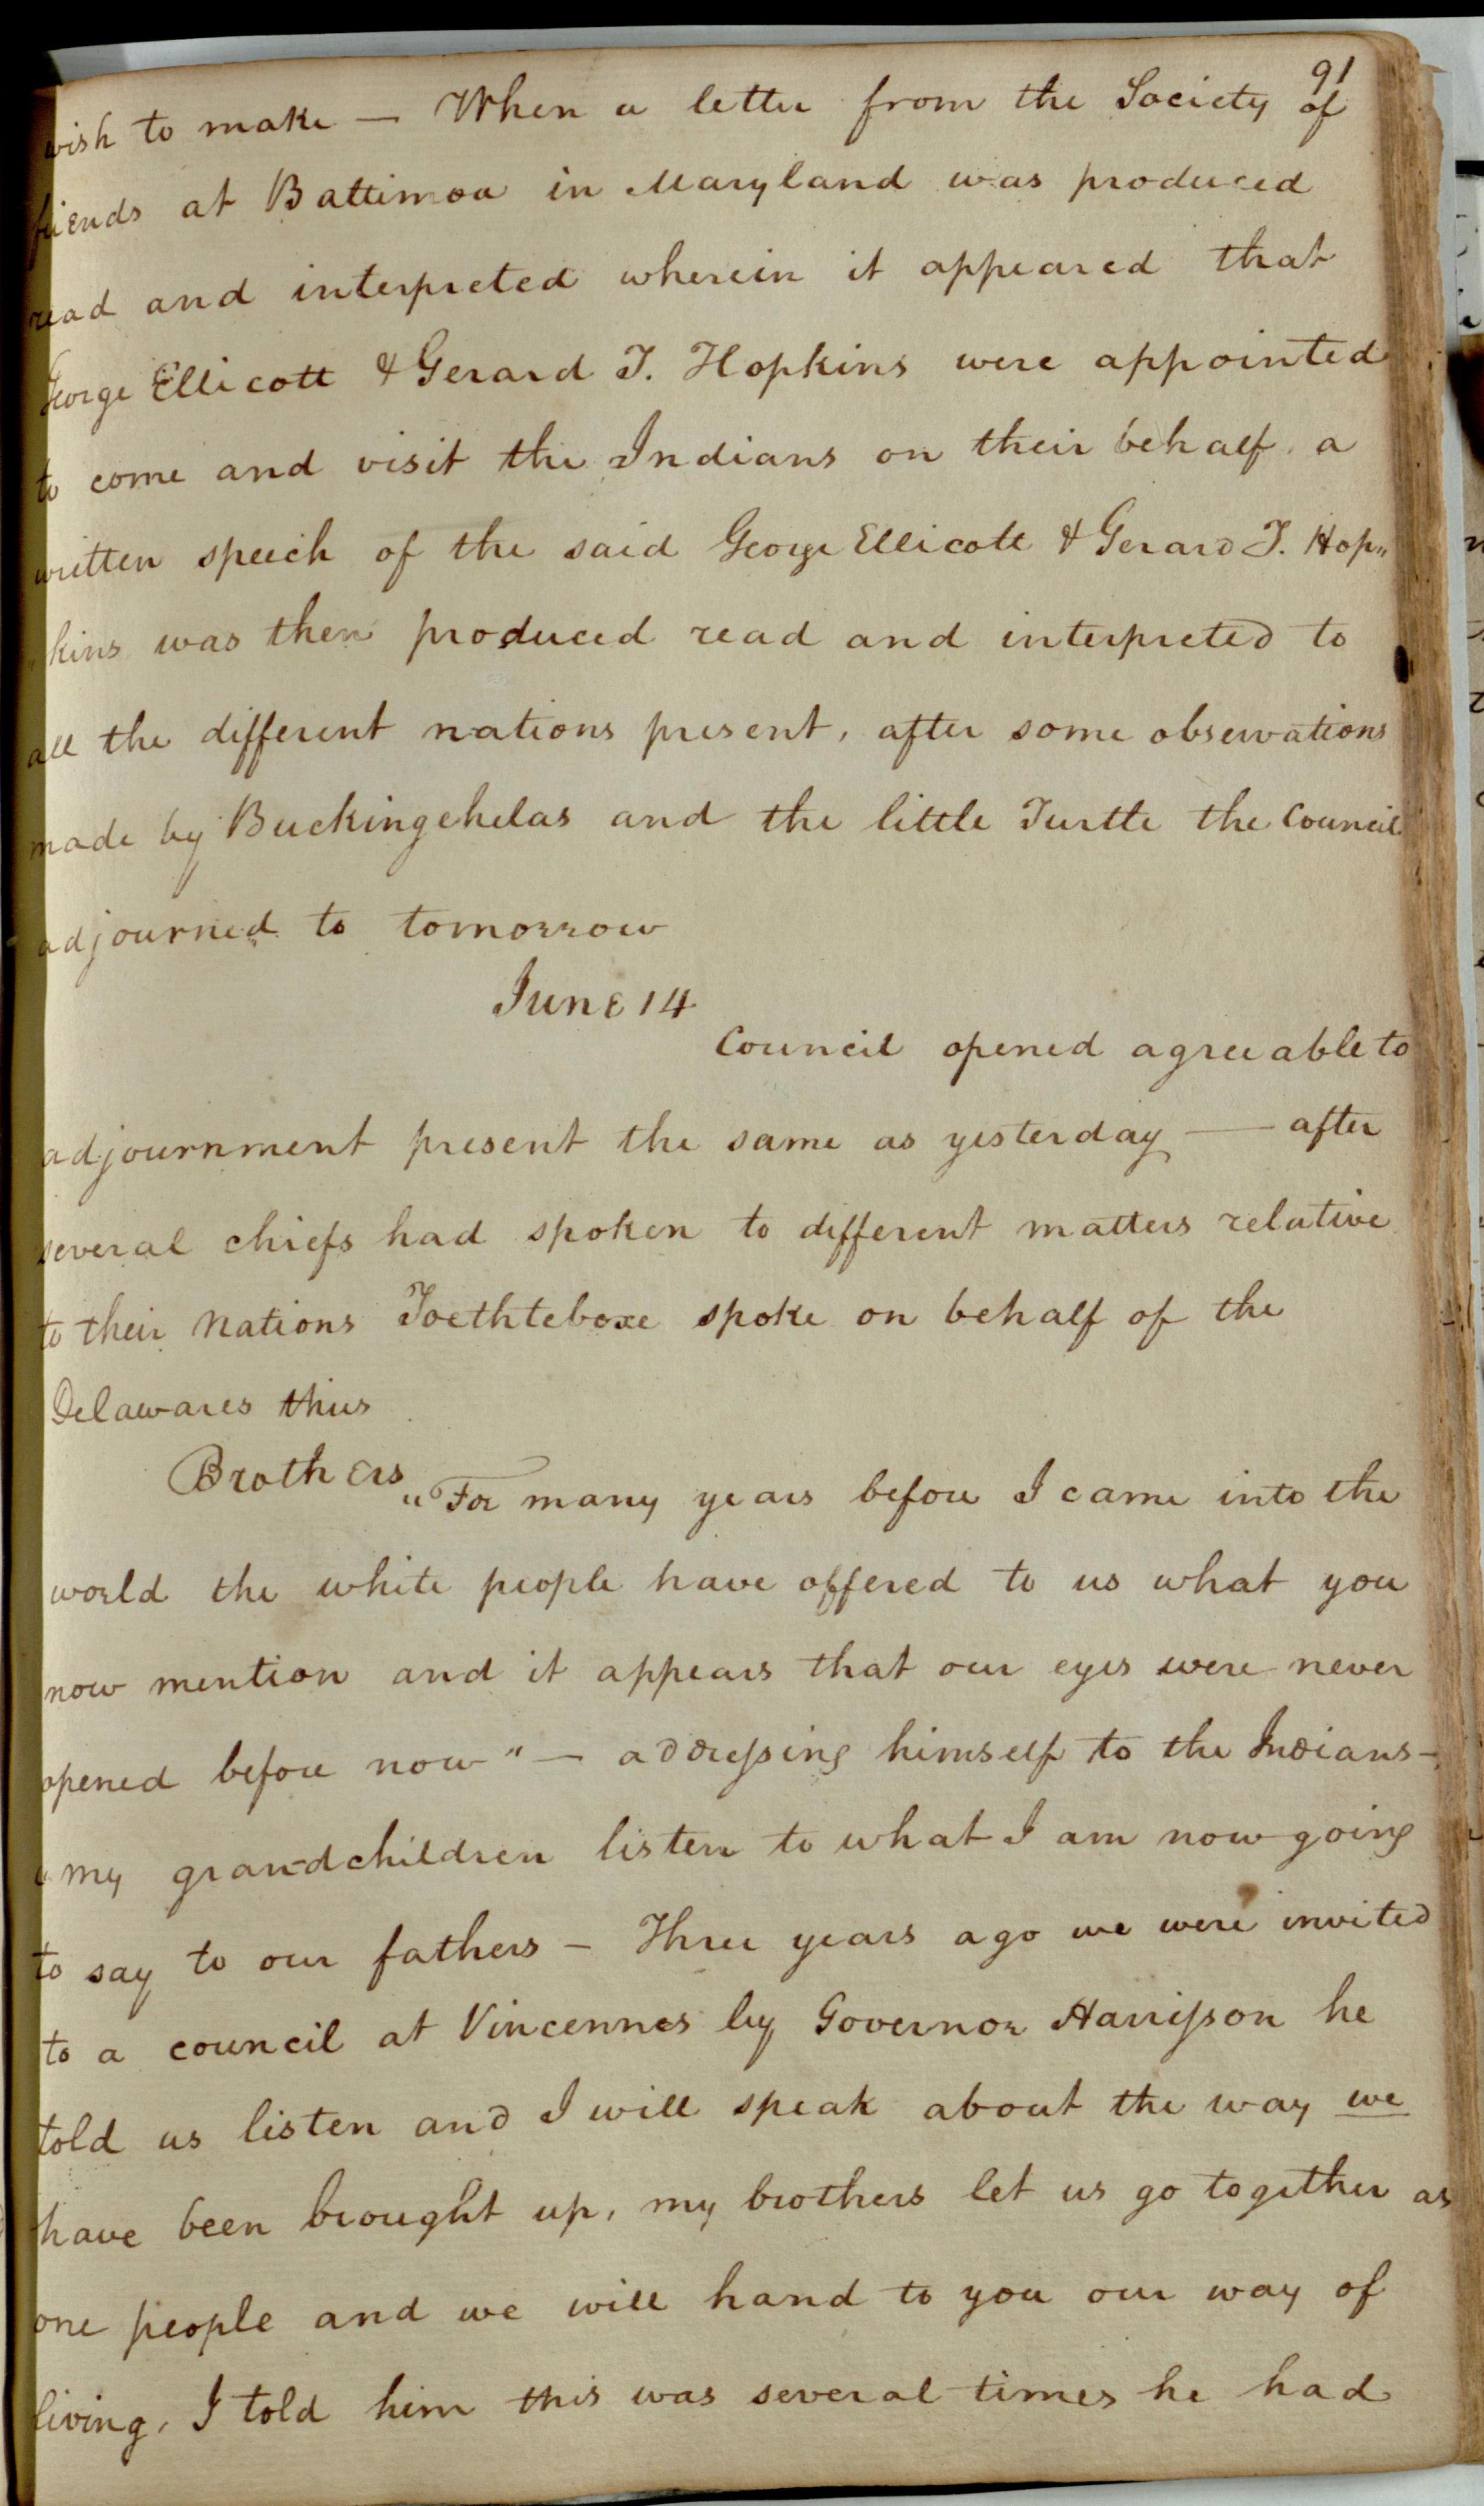 91
wish to make — When a letter from the Society of
friends at Baltimoa in Maryland was produced
read and interpreted wherein it appeared that
George Ellicott & Gerard T. Hopkins were appointed
to come and visit the Indians on their behalf. a
written speech of the said George Ellicott & Gerard T. Hop„
„kins was then produced read and interpreted to
all the different nations present, after some observations
made by Buckingehelas and the little Turtle the Council
adjourned to tomorrow
June 14
Council opened agreeable to
adjournment present the same as yesterday — after
several chiefs had spoken to different matters relative
to their Nations Toethteboxe spoke on behalf of the
Delawares thus
Brothers
"For many years before I came into the
world the white people have offered to us what you
now mention and it appears that our eyes were never
opened before now" — addressing himself to the Indians —
"my grandchildren listen to what I am now going
to say to our fathers — Three years ago we were invited
to a council at Vincennes by Governor Harrisson he
told us listen and I will speak about the way we
have been brought up, my brothers let us go together as
one people and we will hand to you our way of
living, I told him this was several times he had